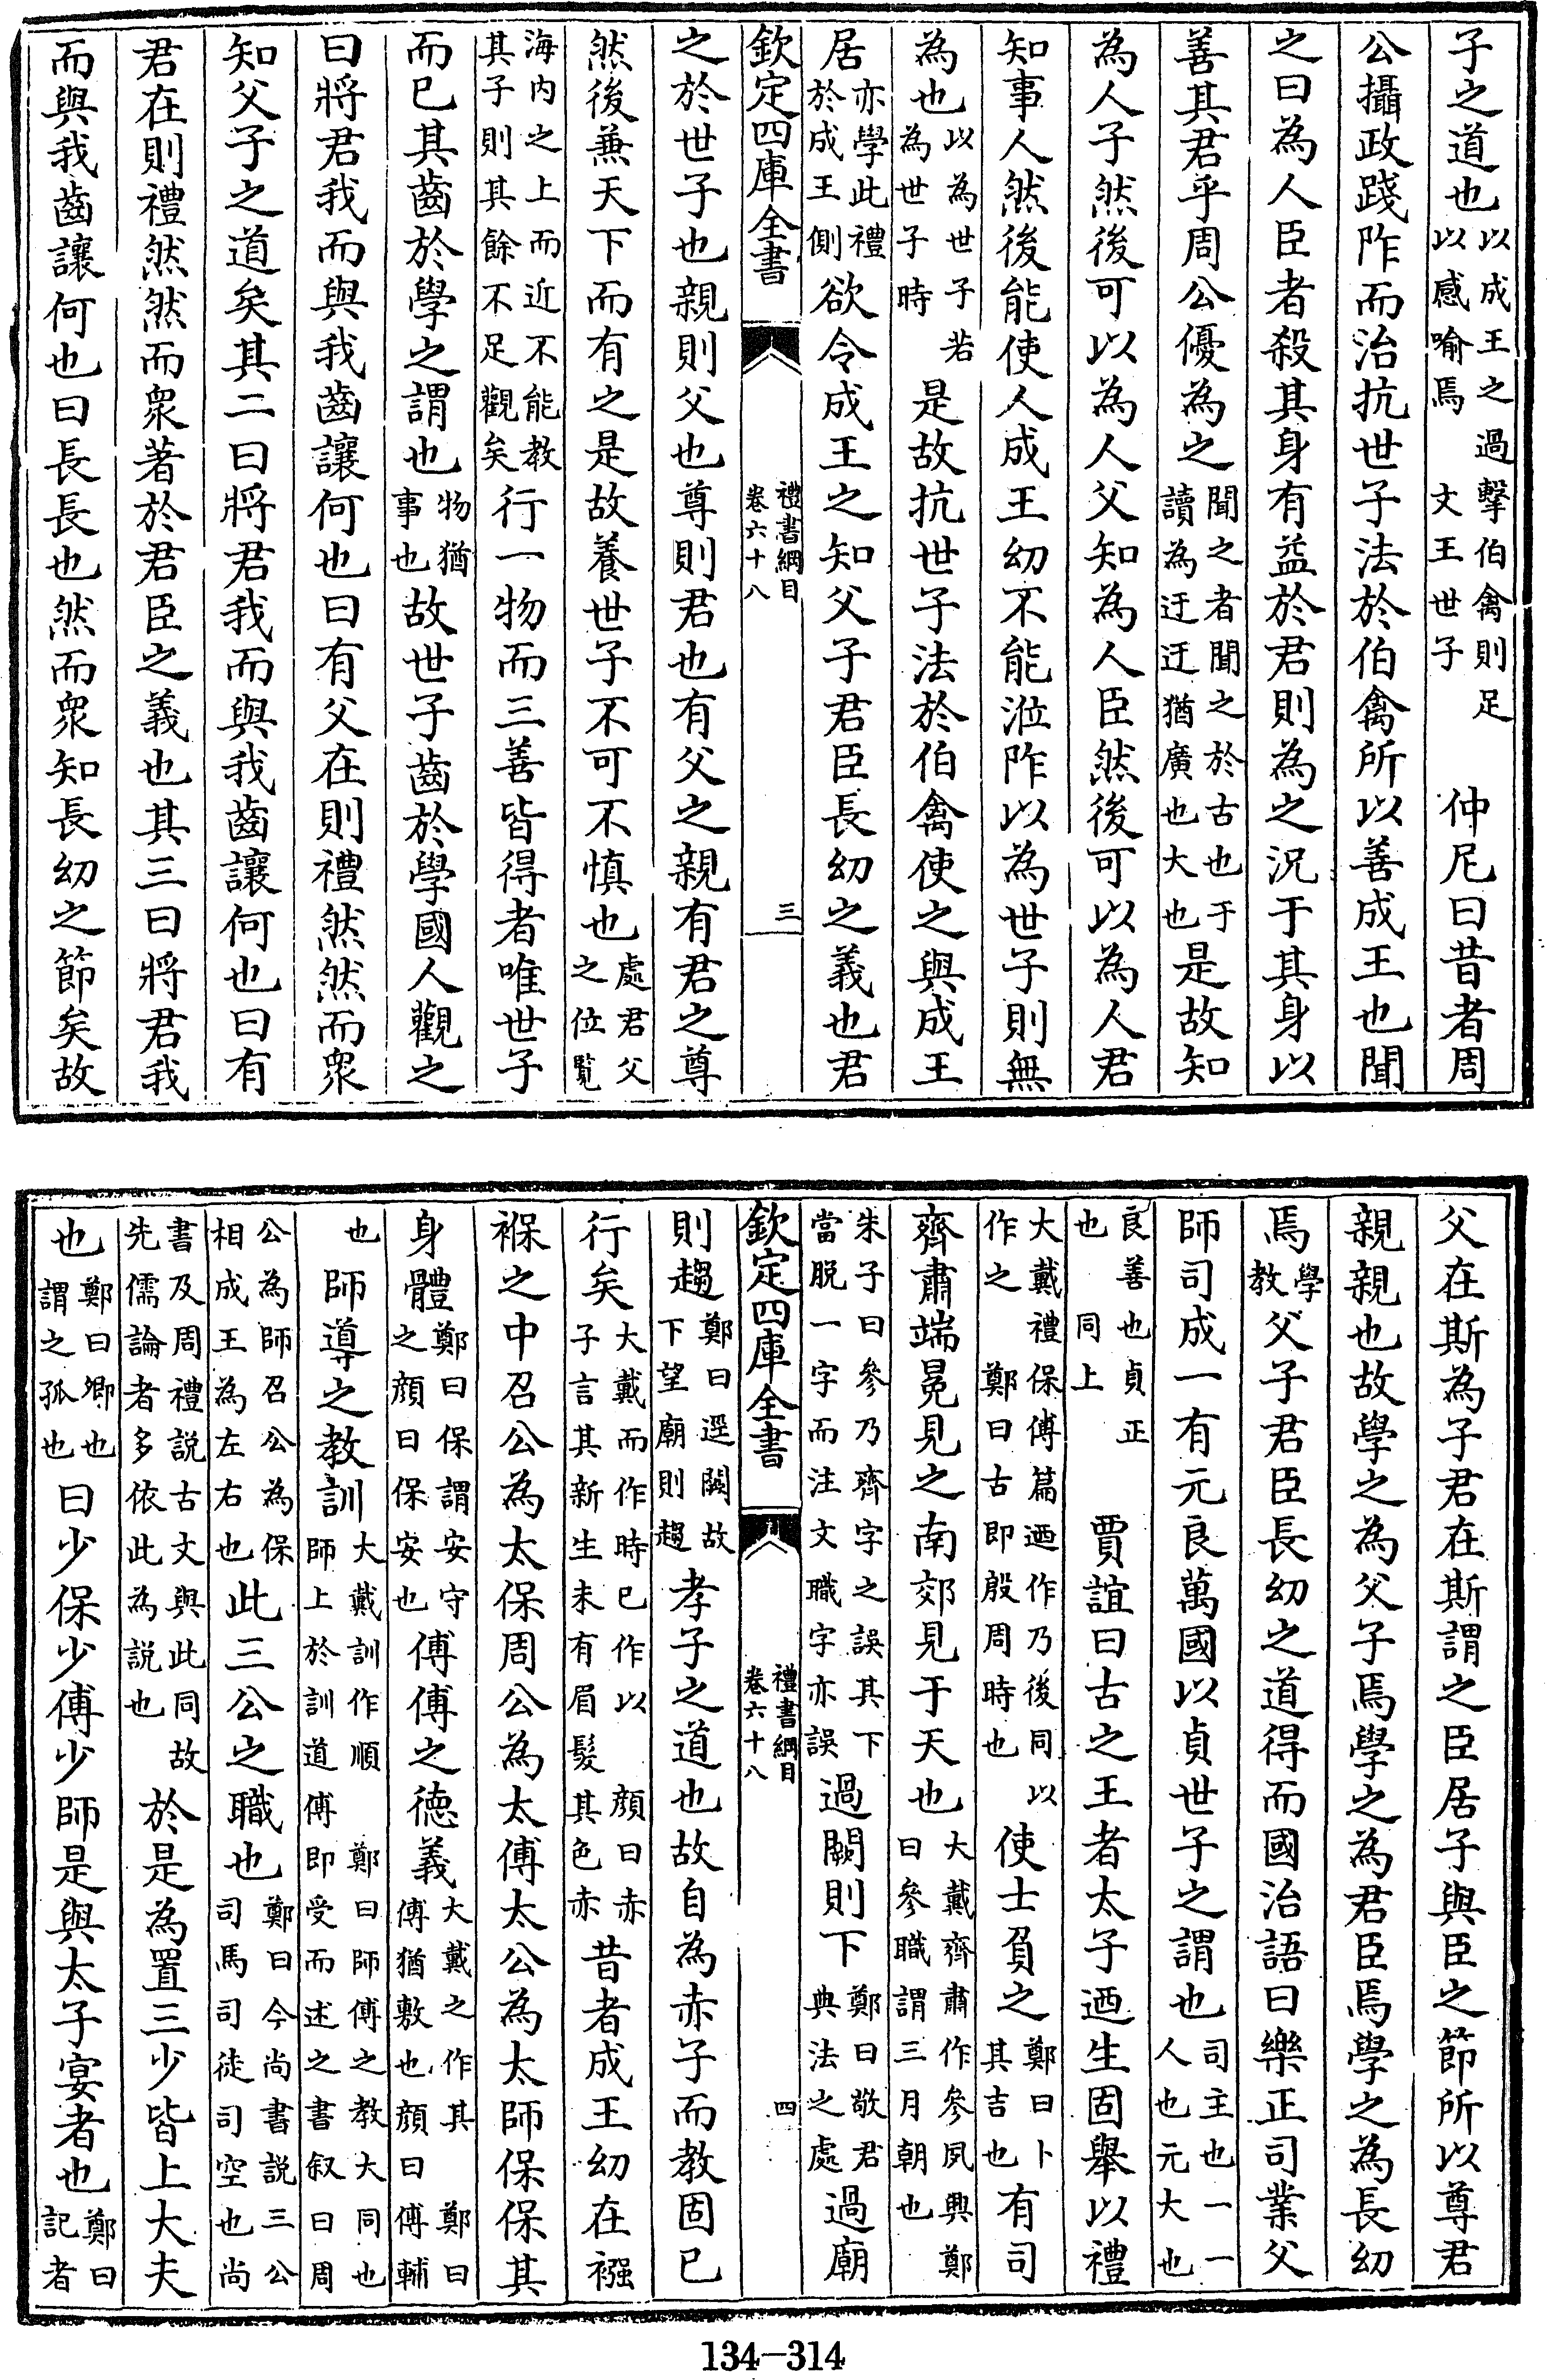 子之道也以成王之過擊伯禽則足以感喻焉文王世子仲尼曰昔者周
公攝政踐阼而治抗世子法於伯禽所以善成王也聞
之曰為人臣者殺其身有益於君則為之況于其身以
善其君乎周公優為之聞之者聞之於古也于讀為迂迂猶廣也大也是故知
為人子然後可以為人父知為人臣然後可以為人君
知事人然後能使人成王幼不能涖阼以為世子則無
為也以為世子若為世子時是故抗世子法於伯禽使之與成王
居亦學此禮於成王側欲令成王之知父子君臣長幼之義也君
欽定四庫全書 禮書綱目 卷六十八 三
之於世子也親則父也尊則君也有父之親有君之尊
然後兼天下而有之是故養世子不可不慎也處君父之位覽
海內之上而近不能教其子則其餘不足觀矣行一物而三善皆得者唯世子
而已其齒於學之謂也物猶事也故世子齒於學國人觀之
曰將君我而與我齒讓何也曰有父在則禮然然而眾
知父子之道矣其二曰將君我而與我齒讓何也曰有
君在則禮然然而眾著於君臣之義也其三曰將君我
而與我齒讓何也曰長長也然而眾知長幼之節矣故
父在斯為子君在斯謂之臣居子與臣之節所以尊君
親親也故學之為父子焉學之為君臣焉學之為長幼
焉學教父子君臣長幼之道得而國治語曰樂正司業父
師司成一有元良萬國以貞世子之謂也司主也一一人也元大也
良善也貞正也同上賈誼曰古之王者太子迺生固舉以禮
大戴禮保傅篇迺作乃後同以作之鄭曰古即殷周時也使士負之鄭曰卜其吉也有司
齊肅端冕見之南郊見于天也大戴齊肅作參夙興鄭曰參職謂三月朝也
朱子曰參乃齊字之誤其下當脫一字而注文職字亦誤過闕則下鄭曰敬君典法之處過廟
欽定四庫全書 禮書綱目 卷六十八 四
則趨鄭曰逕闕故下望廟則趨孝子之道也故自為赤子而教固已
行矣大戴而作時已作以子言其新生未有眉髮顔曰赤其色赤昔者成王幼在襁
褓之中召公為太保周公為太傅太公為太師保保其
身體鄭曰保謂安守之顔曰保安也傅傅之德義大戴之作其傅猶敷也顔曰鄭曰傅輔
也師導之教訓大戴訓作順師上於訓道鄭曰師傅之教大同也傅即受而述之書叙曰周
公為師召公為保相成王為左右也此三公之職也鄭曰今尚書説三公司馬司徒司空也尚
書及周禮説古文與此同故先儒論者多依此為説也於是為置三少皆上大夫
也鄭曰卿也謂之孤也曰少保少傅少師是與太子宴者也鄭曰記者
134-314